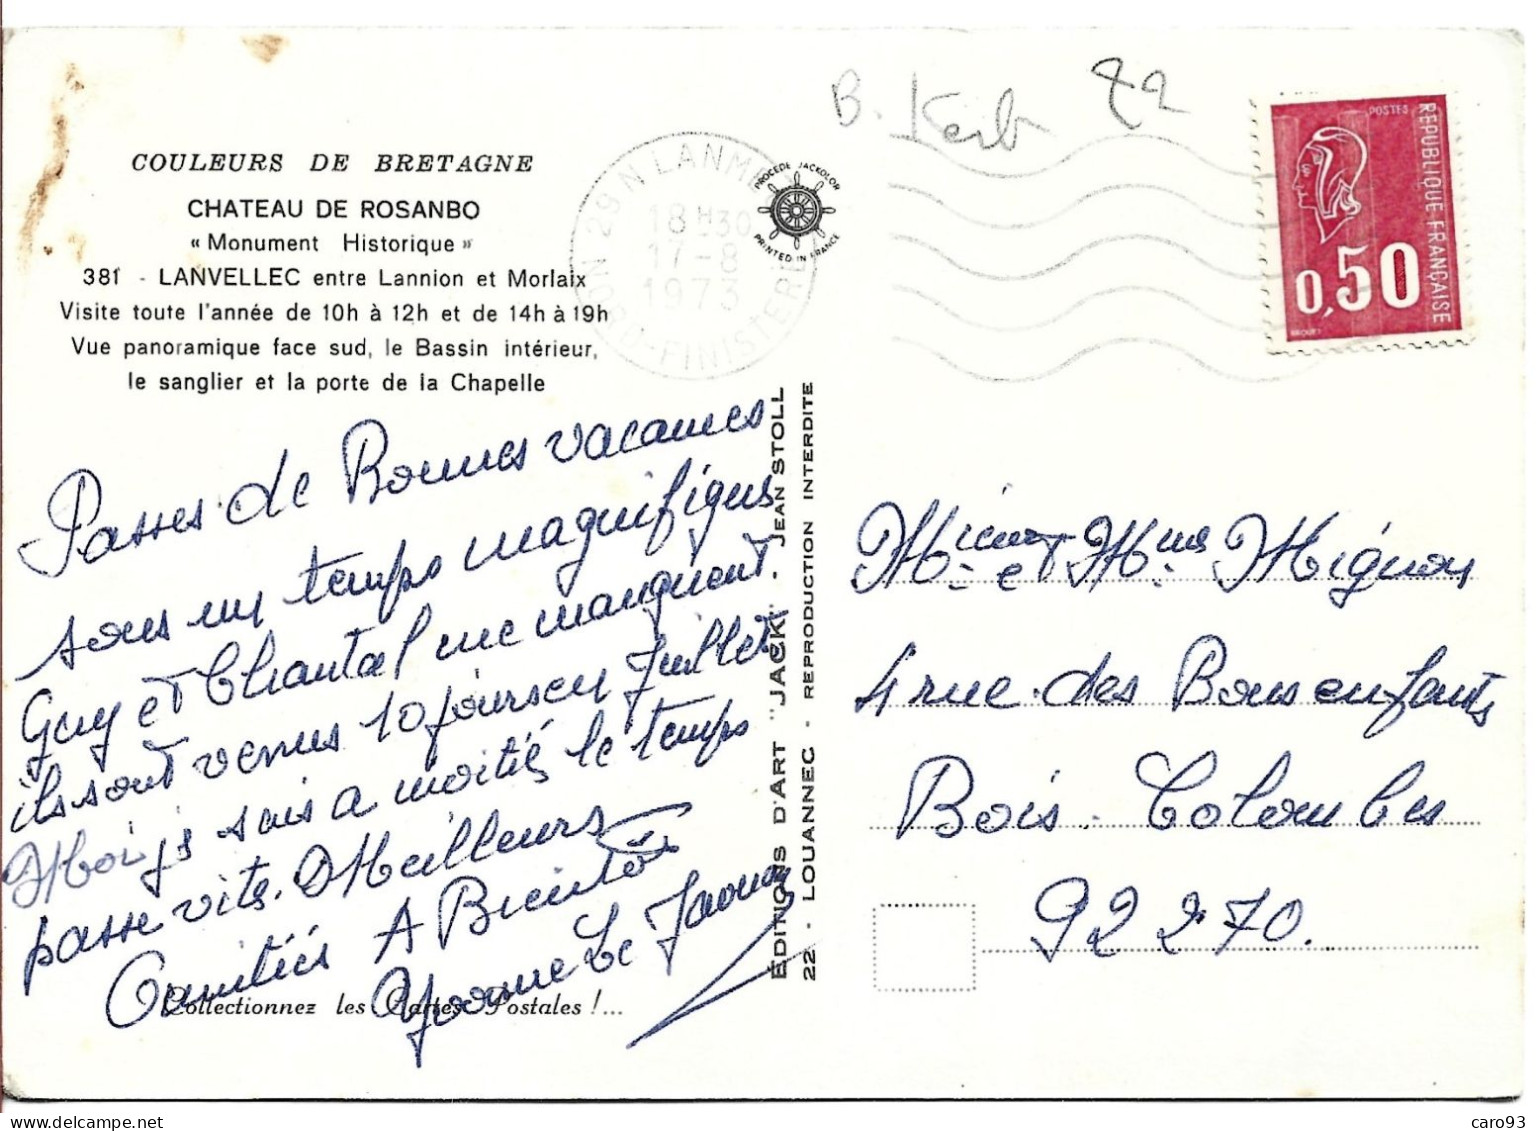 COULEURS DE BRETAGNE
CHATEAU DE ROSANBO
« Monument Historique »
381 - LANVELLEC entre Lannion et Morlaix
Visite toute l'année de 10h à 12h et de 14h à 19h
Vue panoramique face sud, le Bassin intérieur,
le sanglier et la porte de la Chapelle
Passes de Bonnes vacances
sous un temps magnifique
Guy et Chantal me manquent.
ils sont venus 10 jours en Juillet
Moi je suis a moitiés le temps
passe vite. Meilleurs
Amitiés A Bientôt
Yvonne Le Jaouen
Collectionnez les Cartes Postales !...
29 N LANME
18 H 30
17-8
1973
FINISTERE
PROCEDE JACKOLOR
PRINTED IN FRANCE
B. Kerb 22
POSTES
REPUBLIQUE FRANÇAISE
0,50
BEQUET
EDITIONS D'ART "JACK". JEAN STOLL
22 - LOUANNEC - REPRODUCTION INTERDITE
Mr et Mme Mignon
4 rue des Bons enfants
Bois. Colombes
92270.
caro93